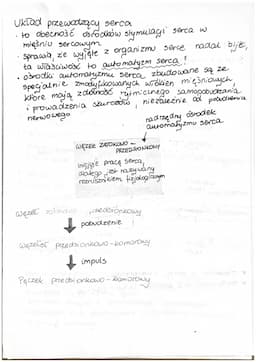 Układ przewodzący serca
· to obecność ośrodków stymulacji serca w
mięśniu sercowym.
· sprawia, że wyjęte z organizmu serce nadal bije,
ta właściwość to automatyzm serca!
· ośrodki automatyzmu serca zbudowane są ze
specjalnie zmodyfikowanych włókien mięśniowych,
które mają zdolność rytmicznego samopobudzania
i prowadzenia skurczów, niezależnie od pobudzenia
nerwowego
nadrzędny ośrodek
automatyzmu serca
WĘZEŁ ZATOKOWO -
PRZEDSIONKOWY
inicjuje pracę serca,
dlatego jest nazywany
rozrusznikiem fizjologicznym
węzeł zatokowo przedsionkowy
↓ pobudzenie
węzeł przedsionkowo-komorowy
↓ impuls
Pęczek przedsionkowo-komorowy